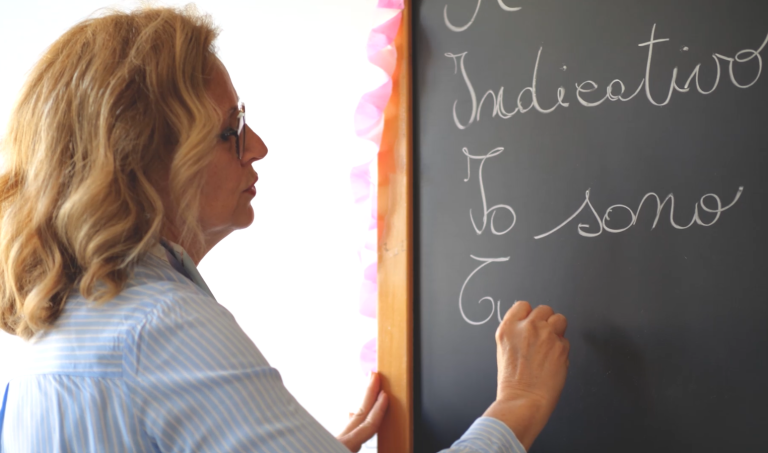 Indicativo
Io sono
Tu